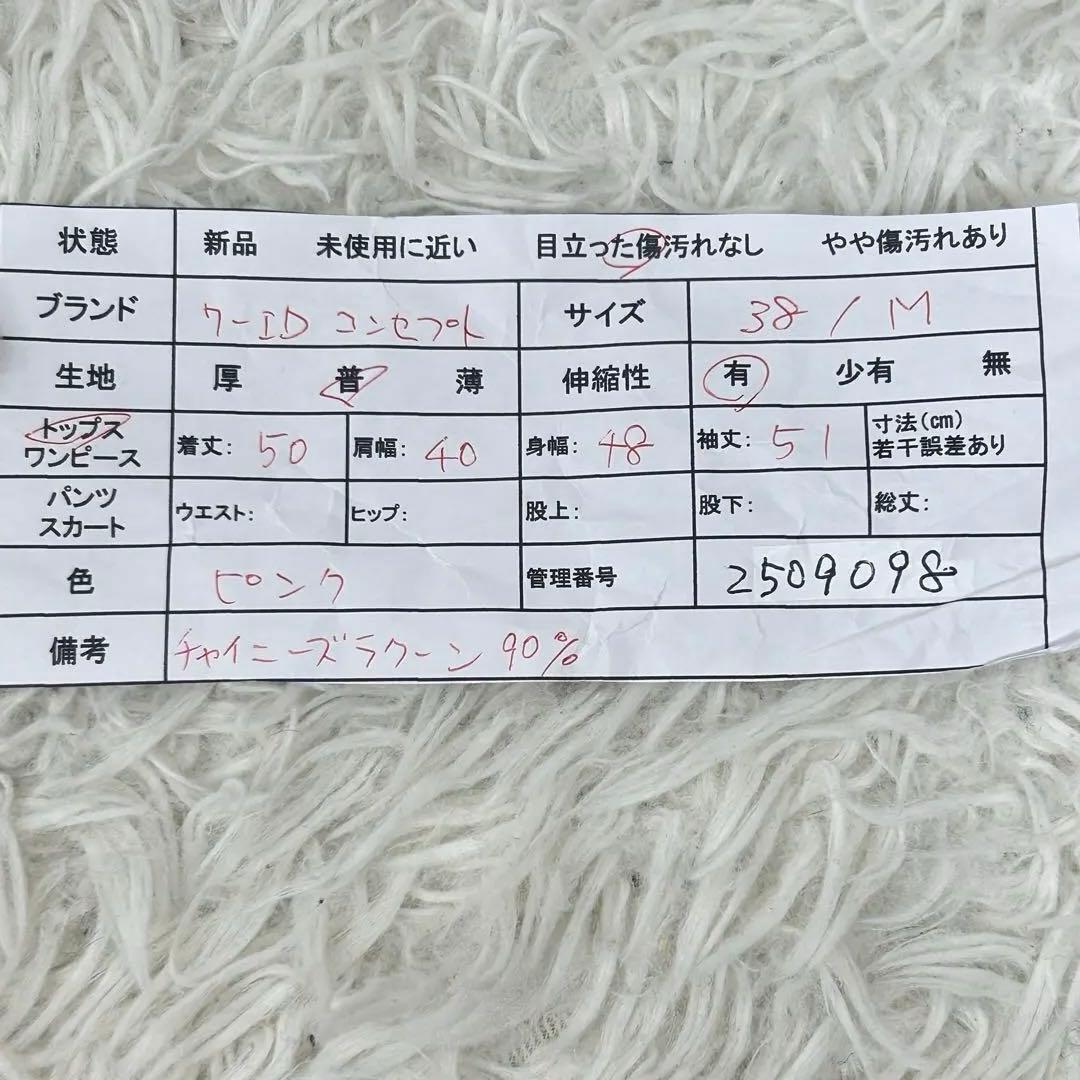 状態 新品 未使用に近い 目立った傷汚れなし やや傷汚れあり
ブランド クーIDコンセプト サイズ 38 / M
生地 厚 普 薄 伸縮性 有 少有 無
トップス
ワンピース 着丈: 50 肩幅: 40 身幅: 48 袖丈: 51 寸法(cm)
若干誤差あり
パンツ
スカート ウエスト: ヒップ: 股上: 股下: 総丈:
色 ピンク 管理番号 2509098
備考 チャイニーズラクーン 90%